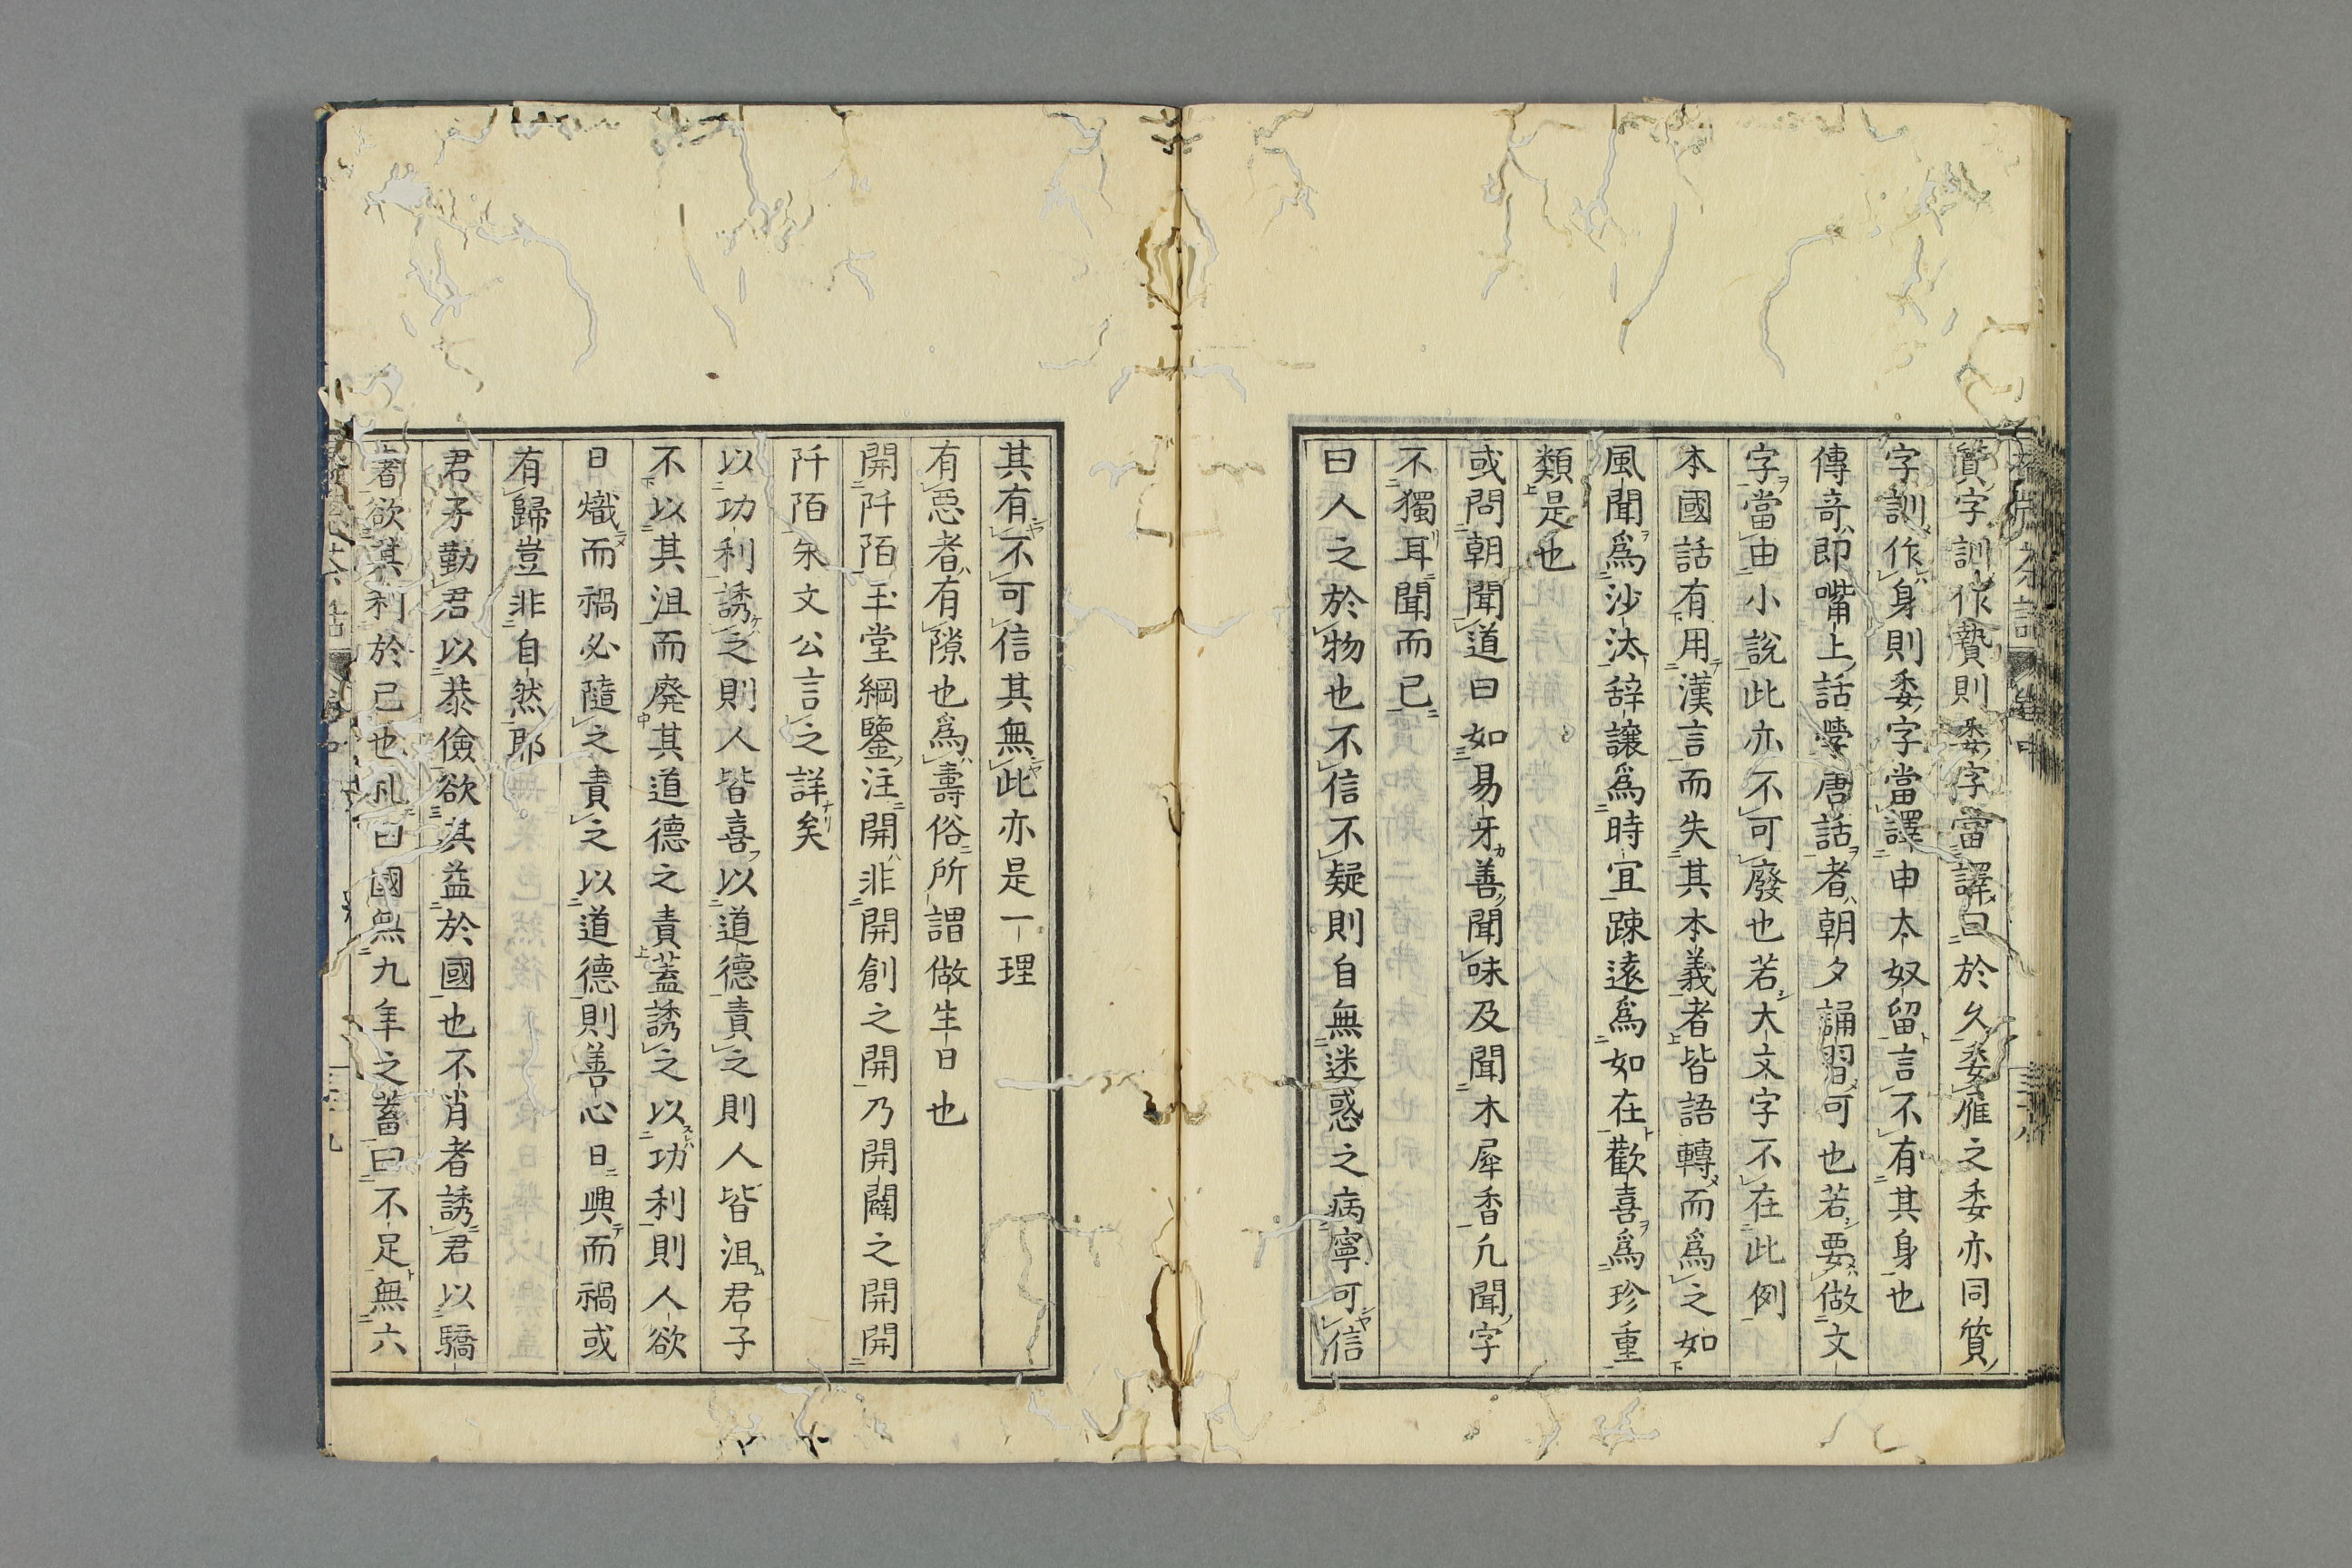 質字訓作贄則委字當譯曰於久委雁之委亦同質
字訓作身則委字當譯申太奴留言不有其身也
傳奇即嘴上話學唐話者朝夕誦習可也若要做文
字當由小說此亦不可廢也若大文字不在此例
本國話有用漢言而失其本義者皆語轉而爲之如
風聞爲沙汰辞讓爲時宜踈遠爲如在歡喜爲珍重
類是也
或問朝聞道曰如易牙善聞味及聞木犀香凢聞字
不獨耳聞而已
曰人之於物也不信不疑則自無迷惑之病寧可信
其有不可信其無此亦是一理
有惡者有隙也爲壽俗所謂做生日也
開阡陌玉堂綱鑒注開非開創之開乃開闢之開開
阡陌朱文公言之詳矣
以功利誘之則人皆喜以道德責之則人皆沮君子
不以其沮而廃其道德之責蓋誘之以功利則人欲
日熾而禍必隨之責之以道德則善心日興而禍或
有歸豈非自然耶
君子勤君以恭儉欲其益於國也不肖者誘君以驕
者欲其利於己也礼曰國無九年之蓄曰不足無六